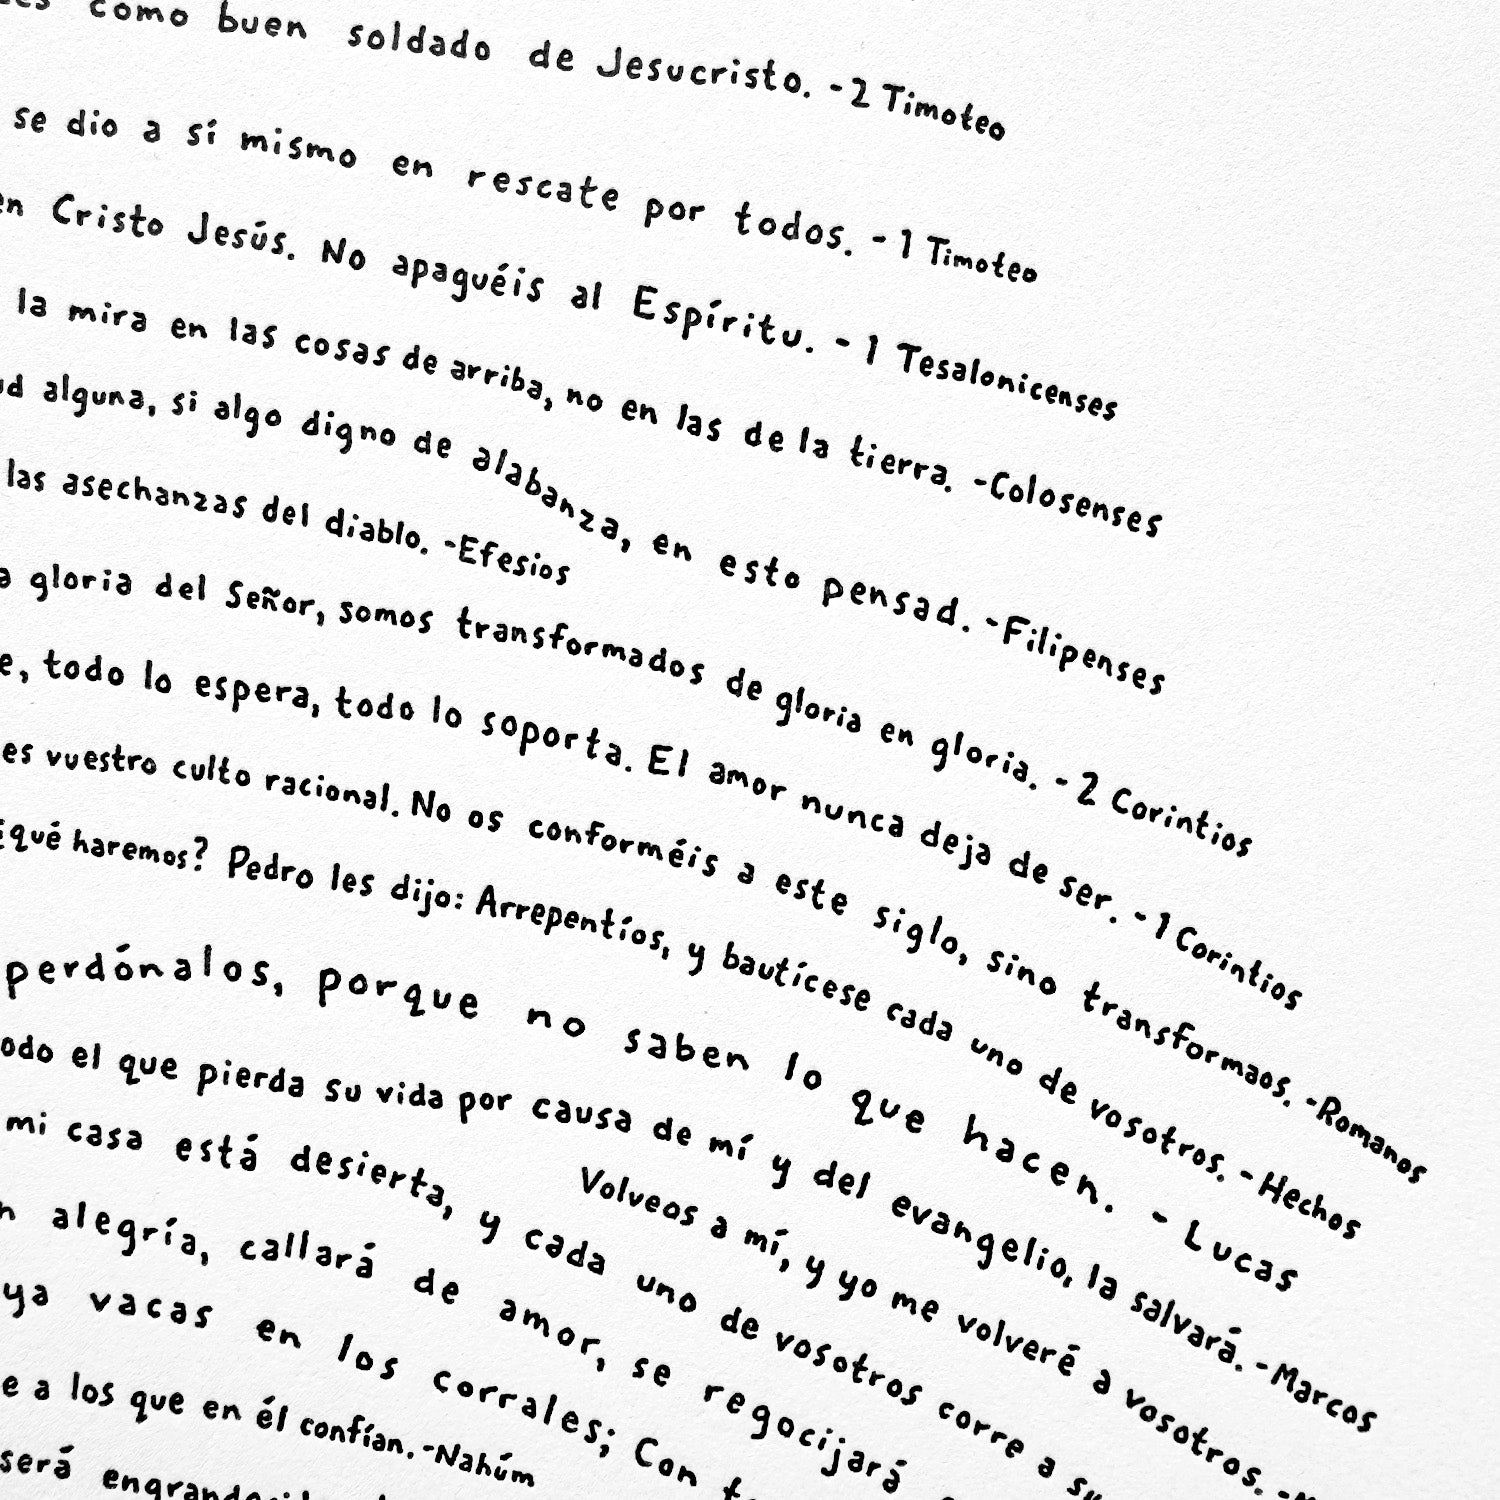 como buen soldado de Jesucristo. -2 Timoteo
se dio a sí mismo en rescate por todos. - 1 Timoteo
en Cristo Jesús. No apaguéis al Espíritu. - 1 Tesalonicenses
la mira en las cosas de arriba, no en las de la tierra. -Colosenses
alguna, si algo digno de alabanza, en esto pensad. -Filipenses
las asechanzas del diablo. -Efesios
gloria del Señor, somos transformados de gloria en gloria. - 2 Corintios
todo lo espera, todo lo soporta. El amor nunca deja de ser. - 1 Corintios
es vuestro culto racional. No os conforméis a este siglo, sino transformaos. -Romanos
¿qué haremos? Pedro les dijo: Arrepentíos, y bautícese cada uno de vosotros. - Hechos
perdónalos, porque no saben lo que hacen. - Lucas
odo el que pierda su vida por causa de mí y del evangelio, la salvará. -Marcos
Volveos a mí, y yo me volveré a vosotros.
mi casa está desierta, y cada uno de vosotros corre a su
alegría, callará de amor, se regocijará
ya vacas en los corrales; Con
e a los que en él confían. -Nahúm
será